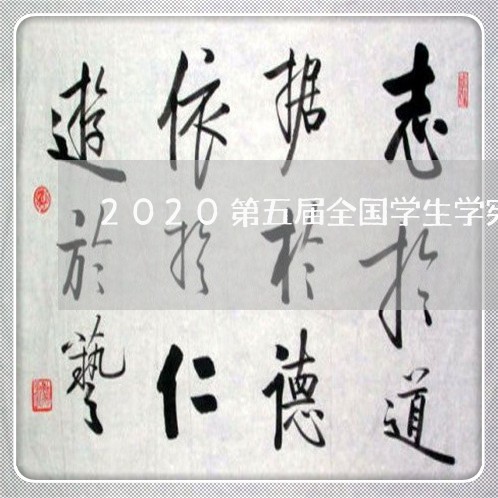 志於道
据於德
依於仁
遊於藝
2020第五届全国学生学